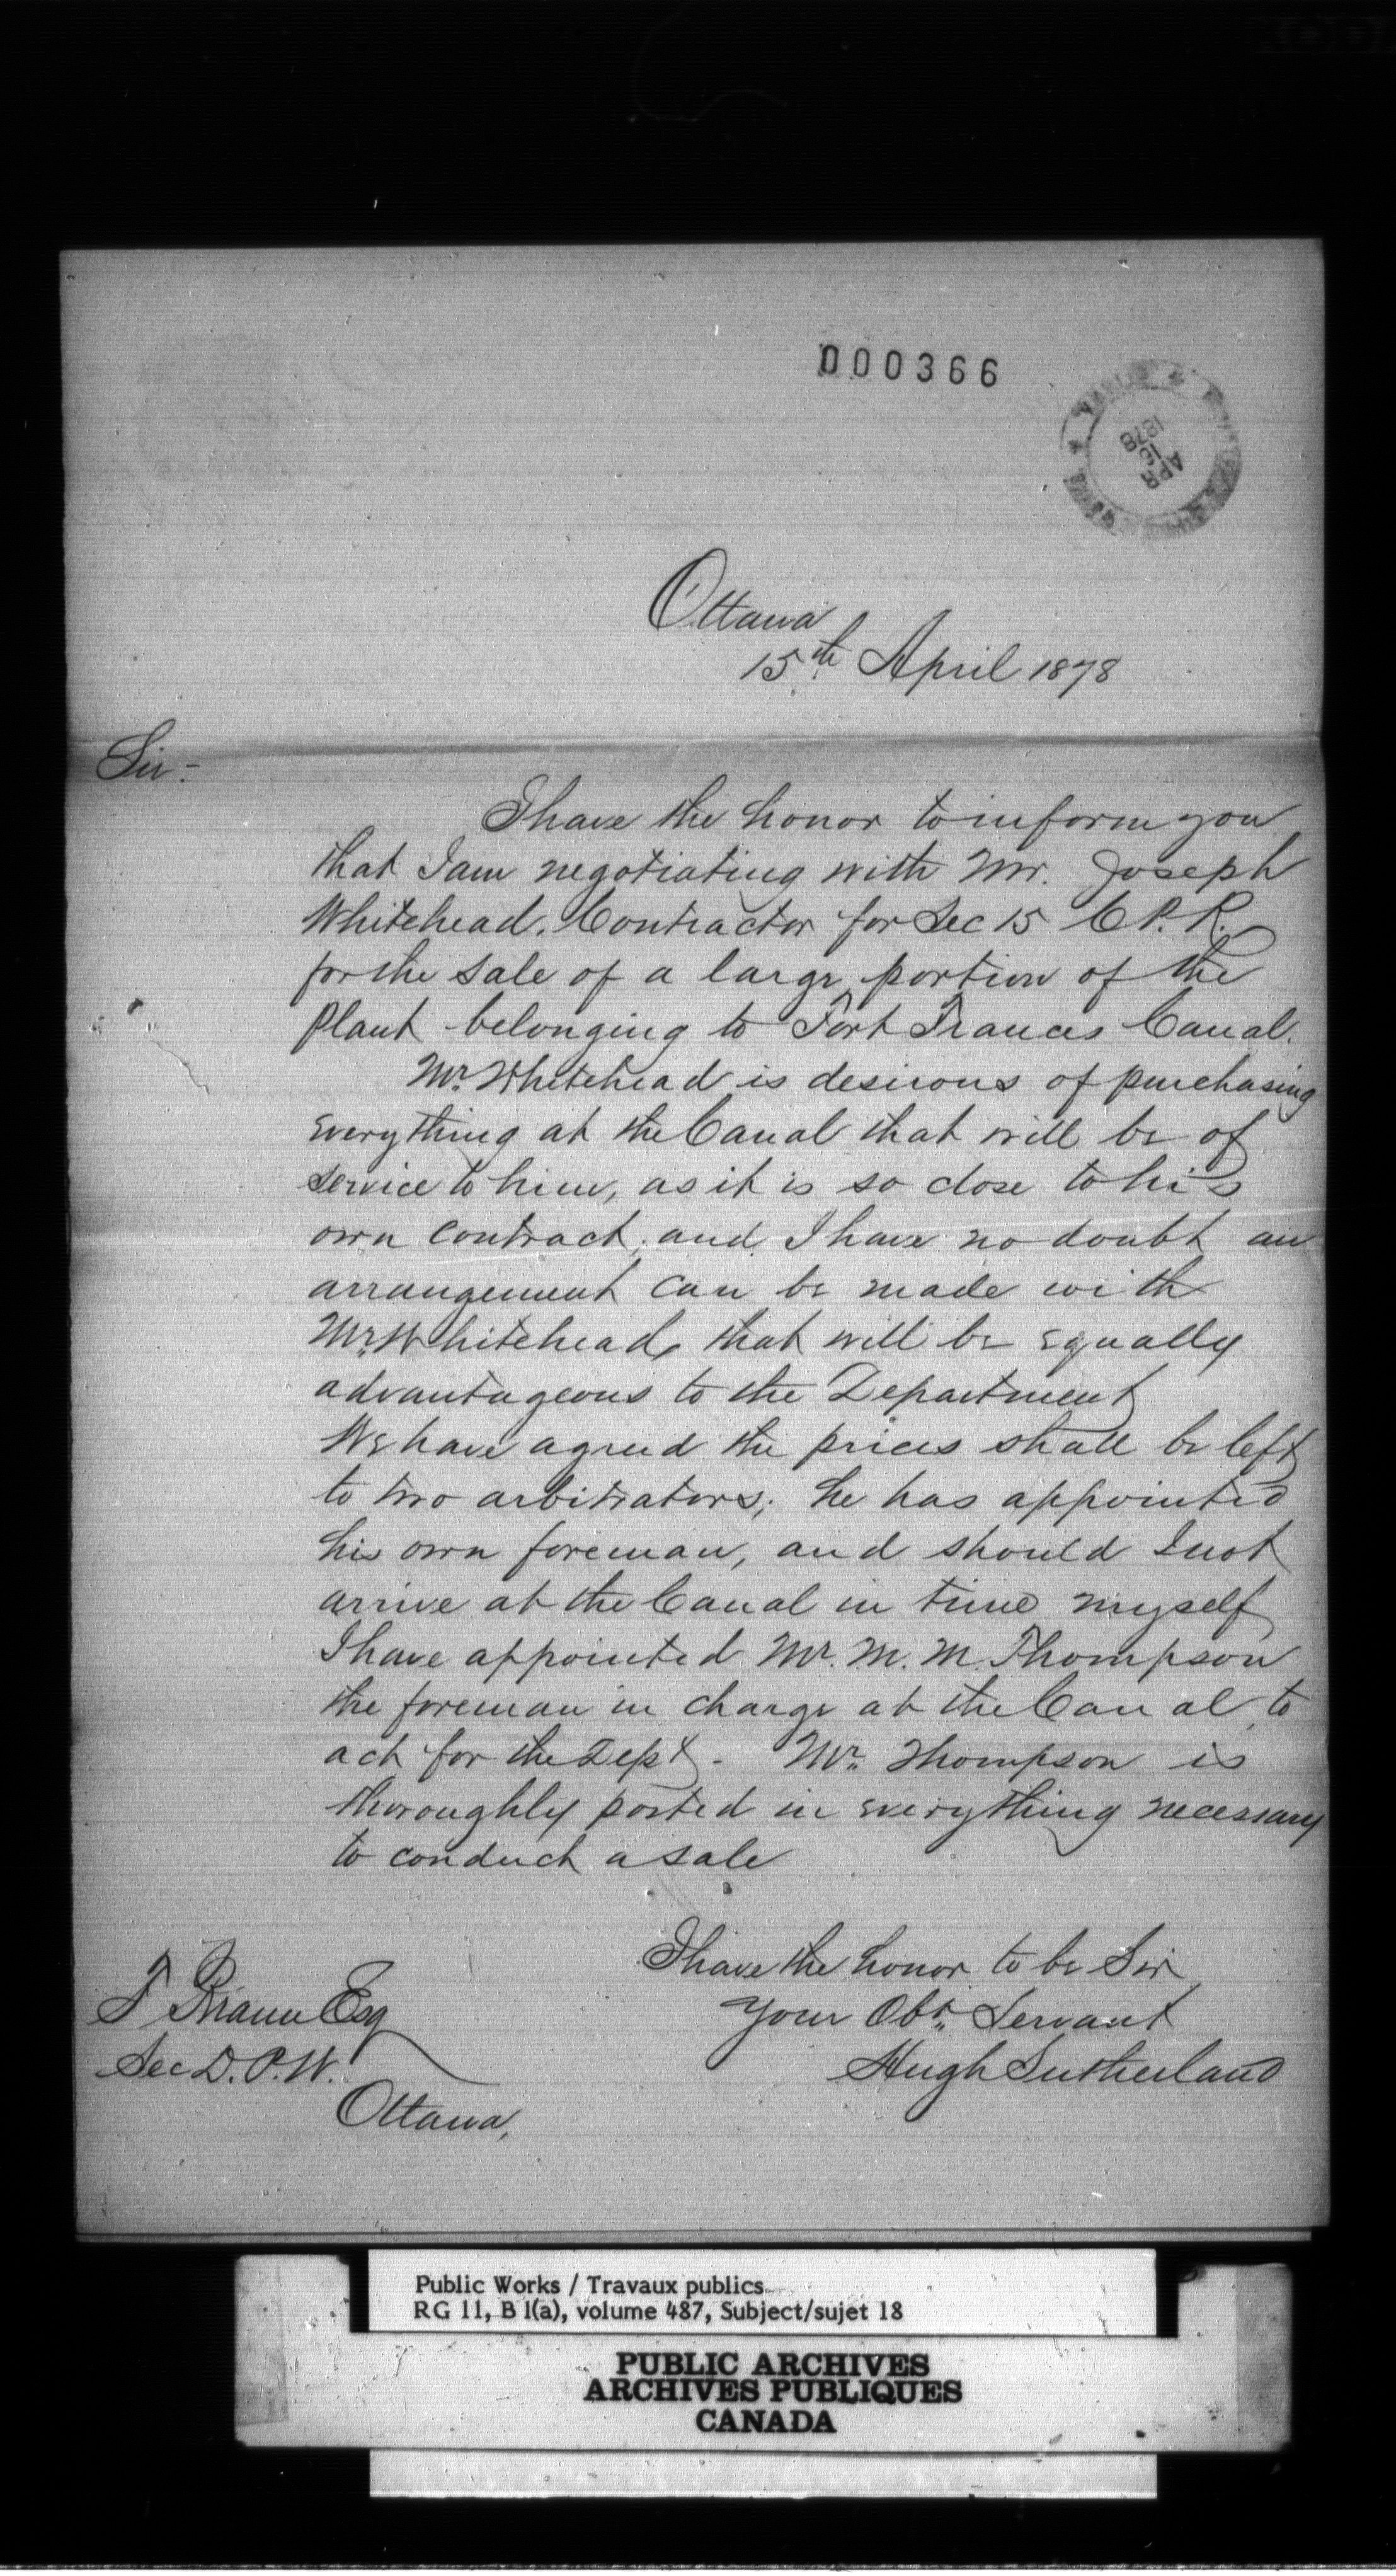 000366
APR
16
1878
Ottawa
15th April 1878
Sir:-
I have the honor to inform you
that I am negotiating with Mr. Joseph
Whitehead. Contractor for Sec 15 C.P.R.
for the sale of a large portion of the
plant belonging to Fort Frances Canal.
Mr. Whitehead is desirous of purchasing
everything at the Canal that will be of
service to him, as it is so close to his
own contract, and I have no doubt an
arrangement can be made with
Mr. Whitehead, that will be equally
advantageous to the Department
We have agreed the prices shall be left
to two arbitrators; he has appointed
his own foreman, and should I not
arrive at the Canal in time myself
I have appointed Mr. M. M. Thompson
the foreman in charge at the Canal, to
act for the Dept. Mr. Thompson is
thoroughly posted in everything necessary
to conduct a sale
I have the honor to be Sir
Your Obt. Servant
Hugh Sutherland
F Braun Esq
Sec D.P.W.
Ottawa,
Public Works / Travaux publics
RG 11, B 1(a), volume 487, Subject/sujet 18
PUBLIC ARCHIVES
ARCHIVES PUBLIQUES
CANADA